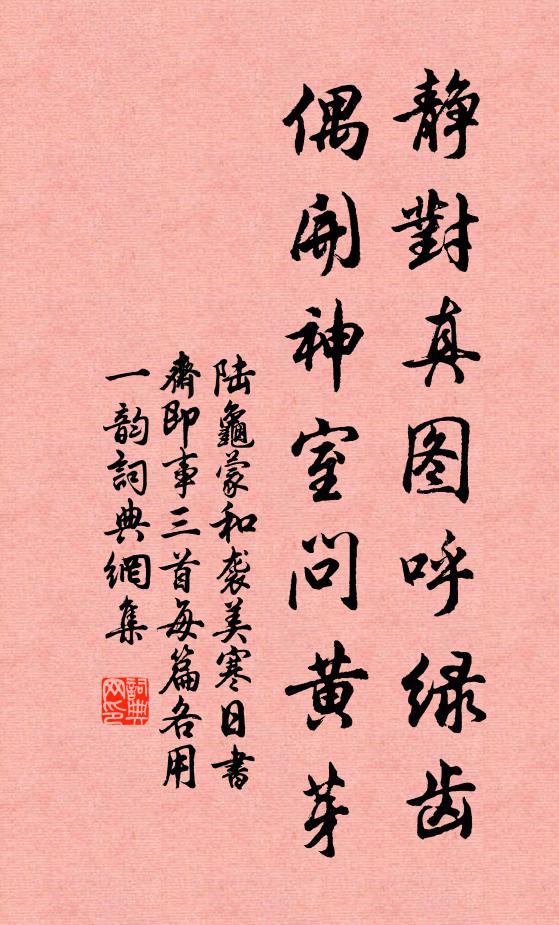 静對真图呼绿齿
偶開神室问黄芽
陆龜蒙和袭美寒日书
齋即事三首每篇各用
一韵詞典網集
詞典网印